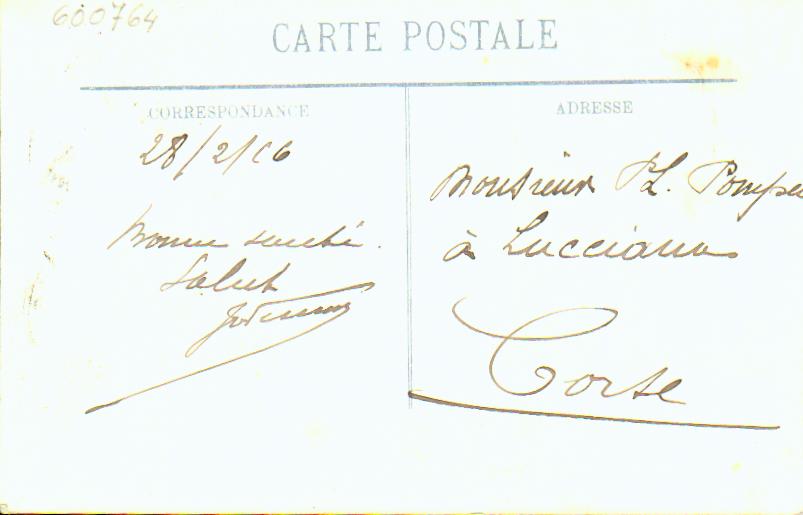 600764
CARTE POSTALE
CORRESPONDANCE
28/2/16
Bonne santé.
Salut
ADRESSE
Monsieur PL. Pompei
à Lucciana
Corse